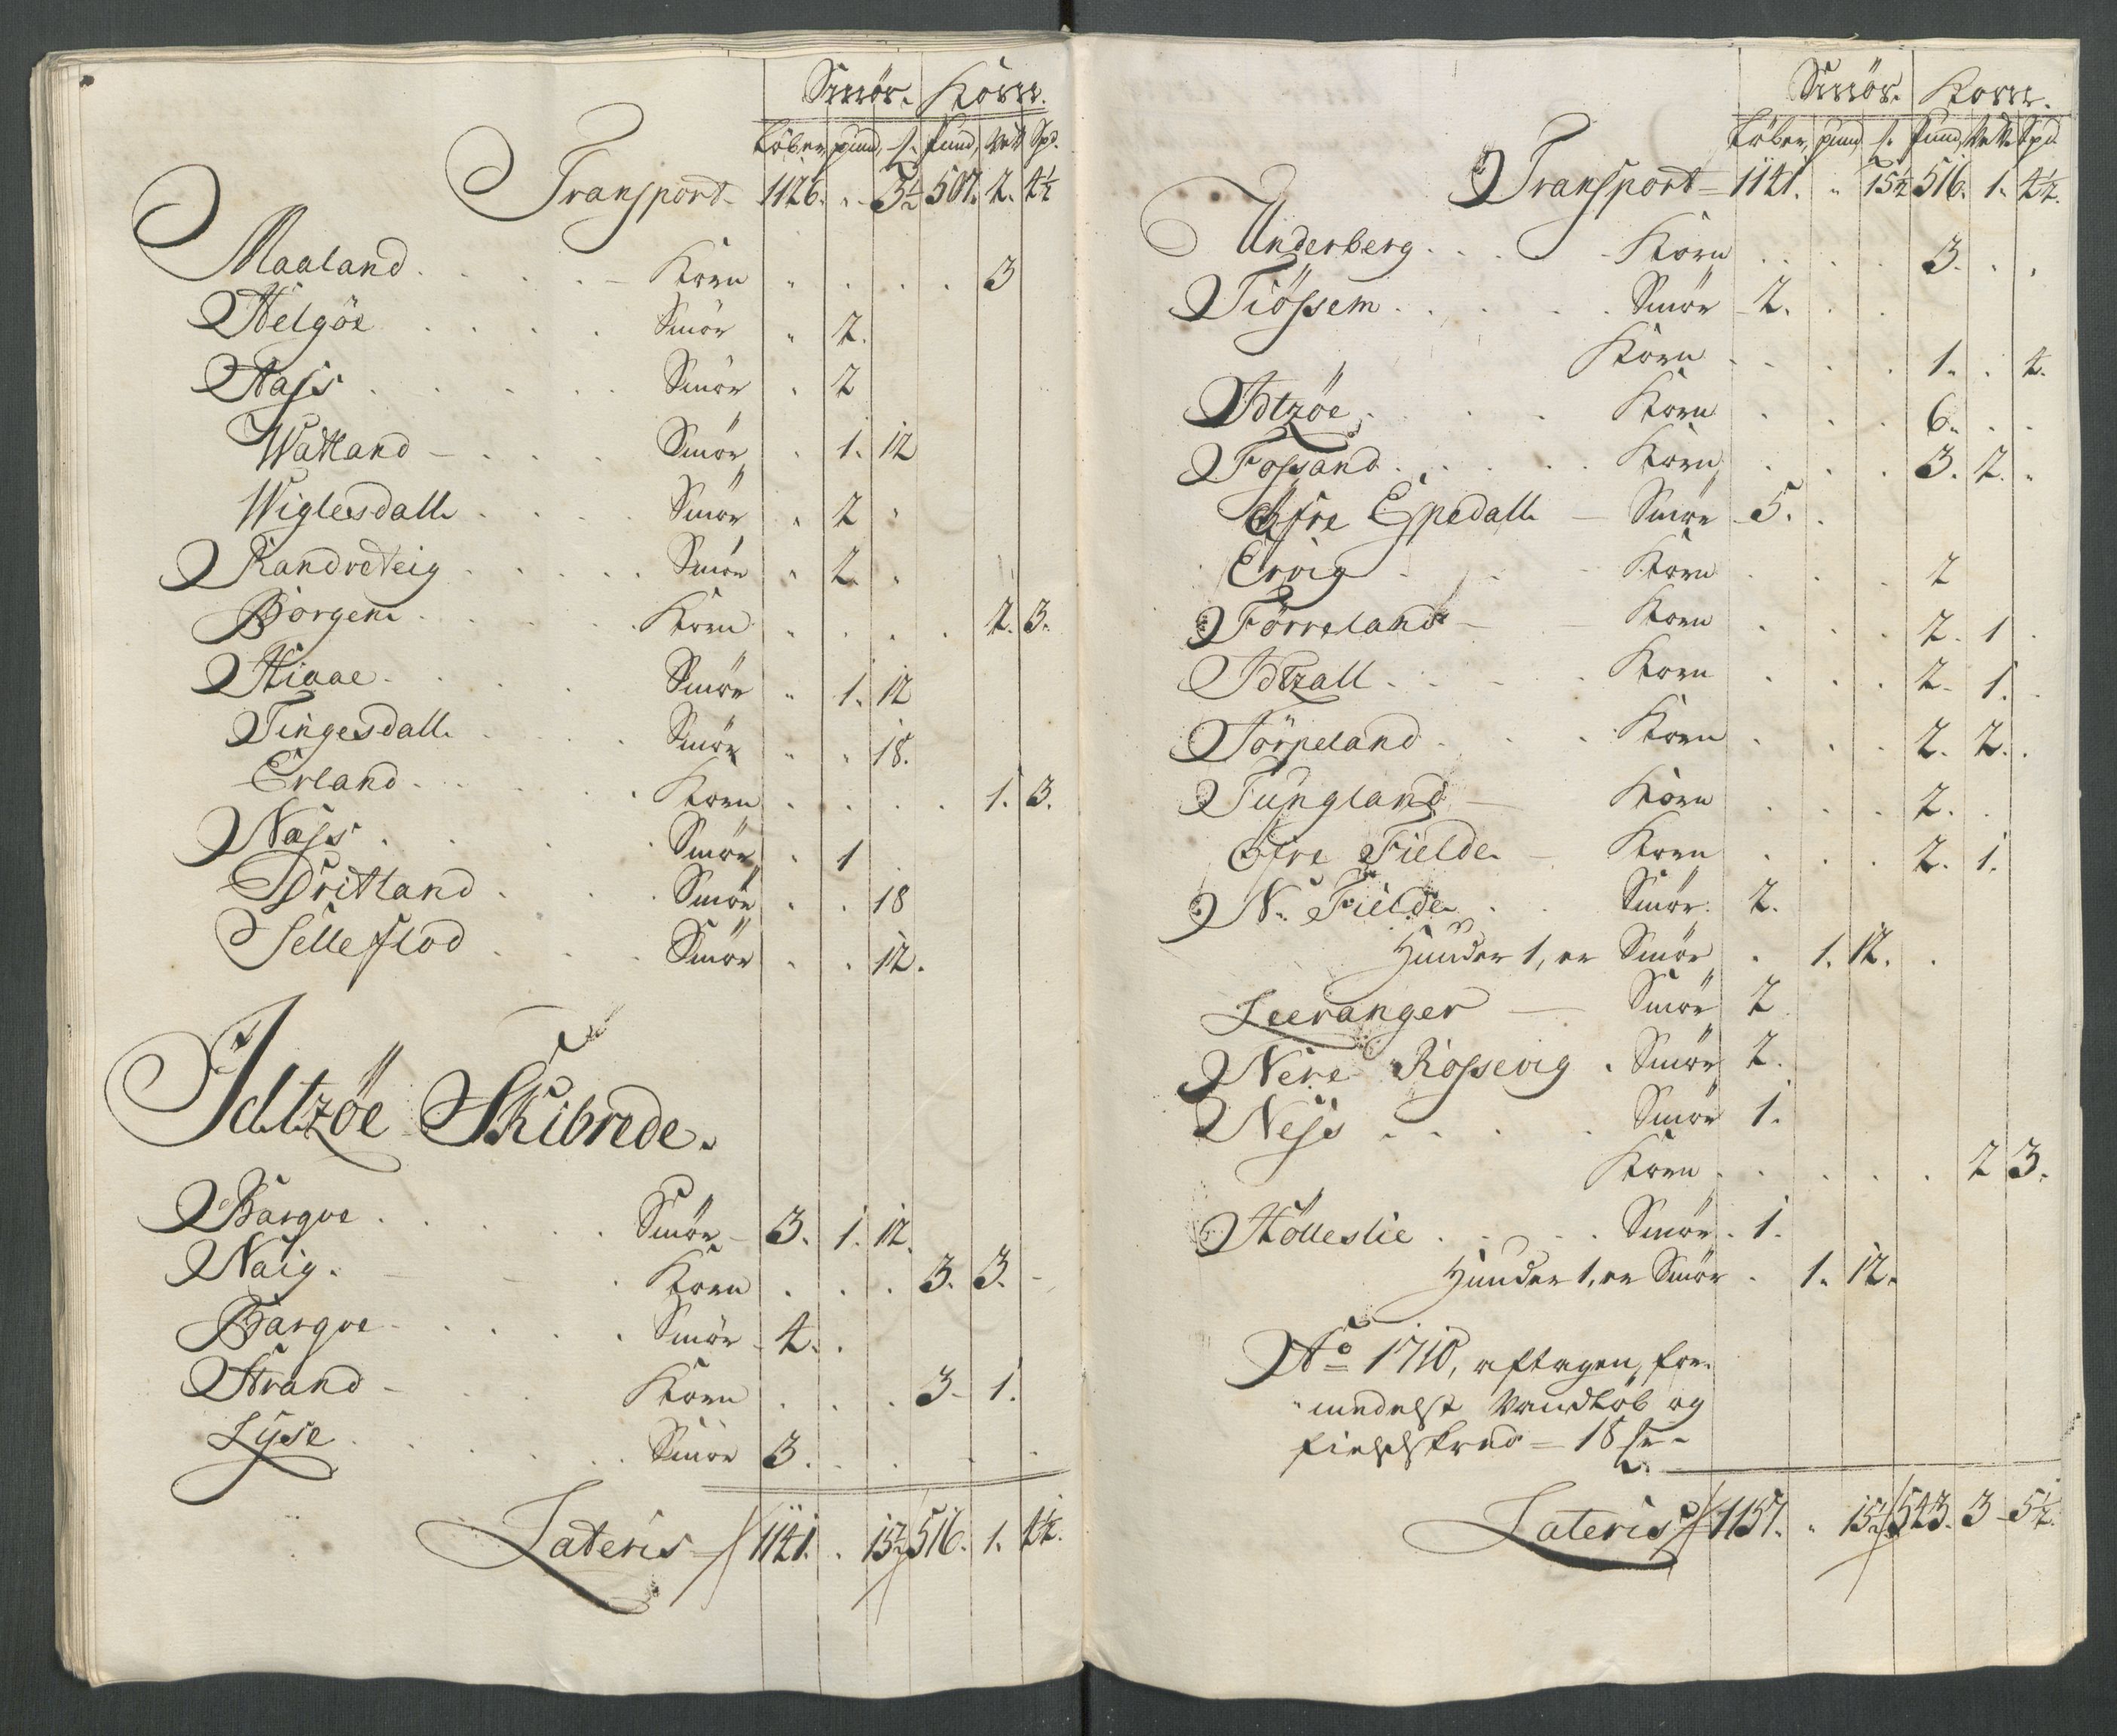 Smör. Korn.
Löber, pund, ℔. Pund, Vett Spd.
Transport - 1126. " 3½ 507. 2. 4½
Maaland . . . . - Korn " . . . . 3
Helgöe . . . . Smör " 2.
Hass . . . . . Smör . 2
Watland - . . . Smör . 1. 12
Wiglesdall . . . . Smör . 2 "
Randveteig . . . . . Smör " 2. "
Borgen . . . . . Korn . . . . . 2. 3.
Hiaae . . . . Smör " 1. 12
Tingesdall . . . . Smör " " 18.
Erland . . . . . Korn . . . . . 1. 3.
Nass . . . . Smör . 1
Dritland . . . . Smör . . 18
Selleflod . . . . Smör . . 12.
Idtzöe Skibrede.
Bargve . . . . . Smör - 3. 1. 12.
Naig. - - . Korn . . . 3. 3. -
Bargve . . . . . Smör - 4. .
Strand - . . Korn . . . 3. 1.
Lyse . . . . . . Smör 3. . . . .
Lateris - 1141. . 15½ 516. 1. 4½.
Smör. Korn.
Löber, pund ℔. Pund, Vett Spd
Transport - 1141. " 15½ 516. 1. 4½.
Underberg . . . . Korn . . . . 3. . .
Tiössem . . . . . Smör - 2. . .
Korn . . . . 1. . 4.
Idtzöe . . . . Korn . . . . 6. . .
Fossand . . . . . Korn . . . . 3. 2. "
Öfre Espedall - Smör - 5. .
Ervig - . - Korn . . . 2
Förreland - - Korn . . . . 2. 1 .
Idtzall . . . . . Korn . . . . 2. 1. .
Jörpeland . . . Korn . . . . 2. 2. .
Tungland - Korn . . . 2. .
Öfre Fielde - Korn . . . . 2. 1.
N. Fielde . . Smör. 2.
Hunder 1, er Smör . 1. 12. .
Leeranger - Smör 2
Nere Rossevig . Smör 2.
Ness . . . . Smör 1.
Korn . . . . . . 2 3.
Hölleslie . . . . Smör . 1.
Hunder 1, er Smör . 1. 12.
Ao 1710, aftagen, for-
medelst Vandlöb og
fieldskred - 18 ℔ -
Lateris 1157. " 15½ 543. 3 - 5½.